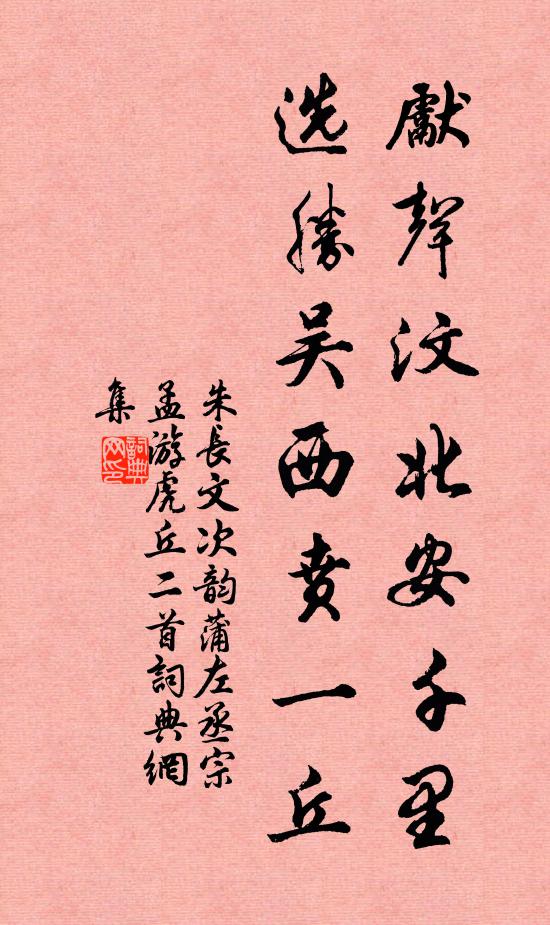 獻聲汶北安千里
选勝吴西賁一丘
朱長文次韵蒲左丞宗
孟游虎丘二首詞典網
集
詞典网印